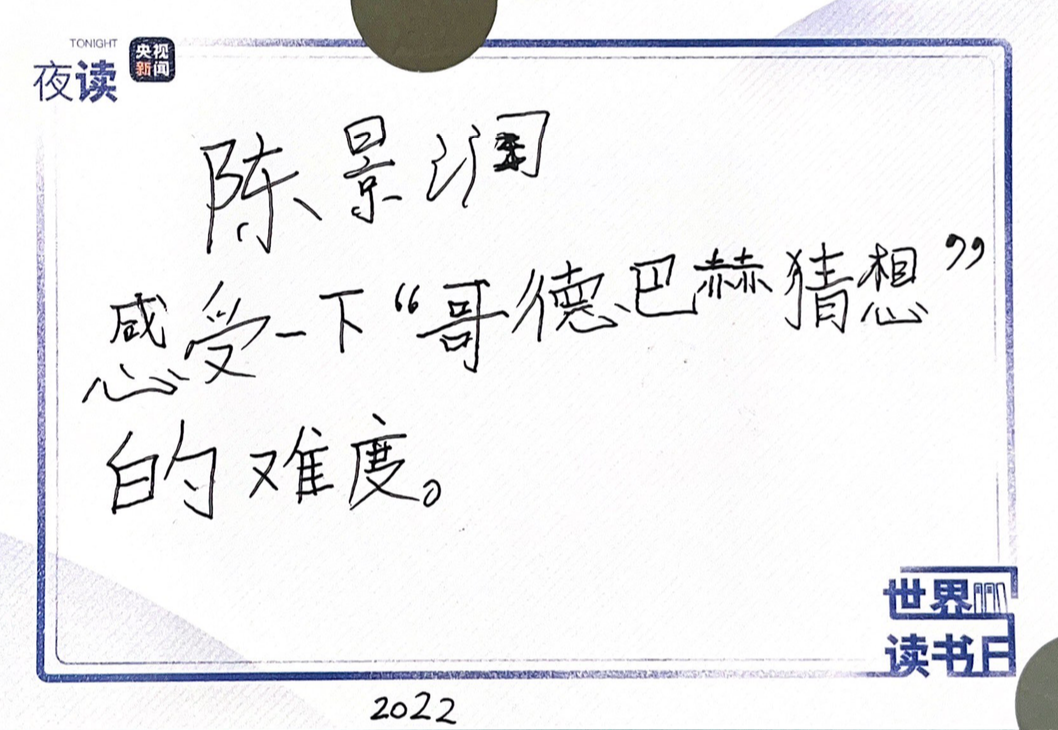 TONIGHT
夜读
央视
新闻
陈景润
感受一下“哥德巴赫猜想”
的难度。
世界
读书日
2022